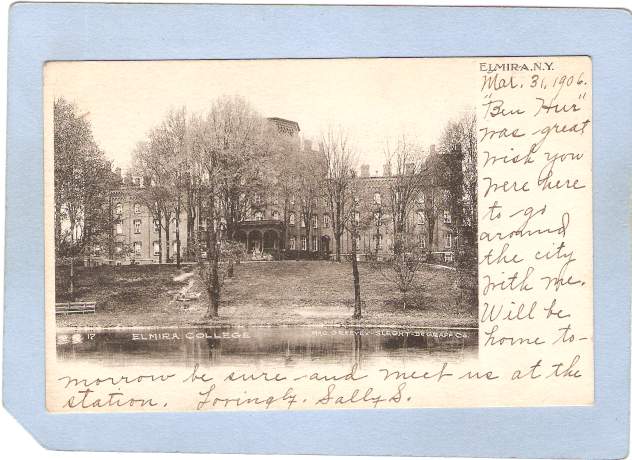 ELMIRA. N.Y.
Mar. 31, 1906.
"Ben Hur"
was great
wish you
were here
to go
around
the city
with me.
Will be
home to-
morrow be sure and meet us at the
station. Lovingly. Sally S.
17 ELMIRA COLLEGE